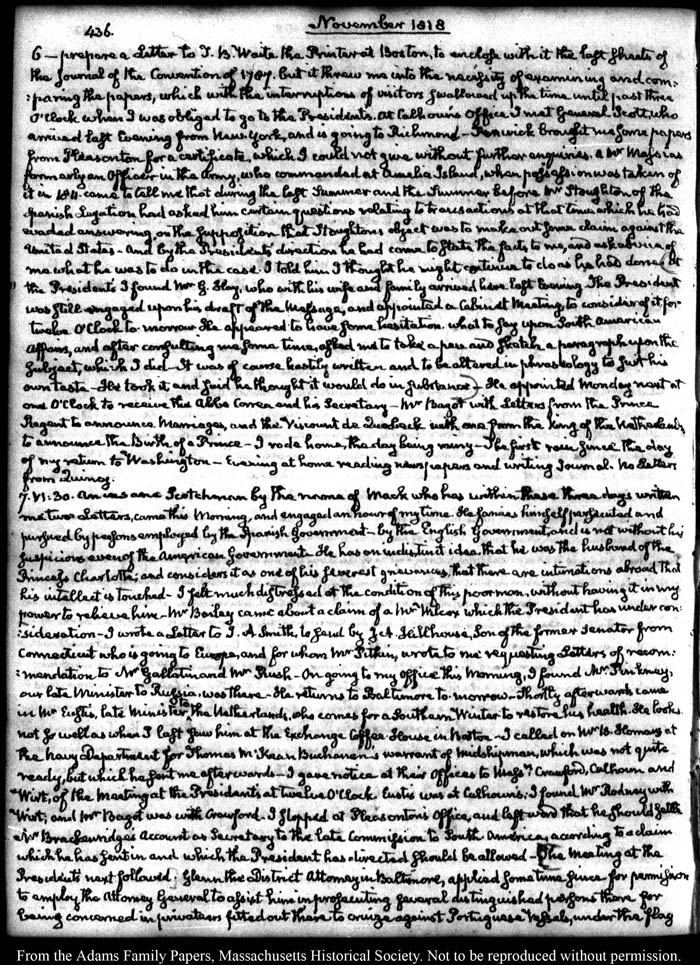 436.
November 1818
6 — prepare a Letter to T. B. Waite the Printer at Boston, to enclose with it the last sheets of
the Journal of the Convention of 1787. but it threw me into the necessity of examining and com-
:paring the papers, which with the interruptions of visitors swallowed up the time until past three
O'Clock when I was obliged to go to the Presidents. At Calhoun's Office I met General Scott, who
arrived last Evening from New-York, and is going to Richmond — brought me some papers
from Pleasonton for a certificate, which I could not give without further enquiries. A Mr Massias
formerly an Officer in the Army, who commanded at Amelia Island, when possession was taken of
it in came to tell me that during the last Summer and the Summer before Mr Stoughton of the
Spanish Legation had asked him certain questions relating to transactions at that time which he had
evaded answering on the supposition that Stoughton's object was to make out some claim against the
United States — And by the Presidents direction he had come to state the facts to me, and ask advice of
me what he was to do in the case. I told him I thought he might continue to do as he had done. At
the Presidents I found Mr G. Hay, who with his wife and family arrived here last Evening. The President
was still engaged upon his draft of the Message, and appointed a Cabinet Meeting to consider of it for
twelve O'Clock to-morrow. He appeared to have some hesitation what to say upon South American
Affairs, and after consulting me some time, asked me to take a pen and sketch a paragraph upon the
subject, which I did — It was of course hastily written and to be altered in phraseology to suit his
own taste — He took it and said he thought it would do in substance — He appointed Monday next at
one O'Clock to receive the Abbe Correa and his Secretary — Mr Bagot with Letters from the Prince
Regent to announce Marriages, and the Viscount de Quabeck with one from the King of the Netherlands
to announce the Birth of a Prince — I rode home, the day being rainy — The first rain since the day
of my return to Washington — Evening at home reading newspapers and writing Journal. No Letters
from Quincy.
7. VI:30. An insane Scotchman by the name of Mack who has within these three days written
me two Letters, came this Morning, and engaged an hour of my time. He fancies himself persecuted and
pursued by persons employed by the Spanish Government — by the English Government, and is not without his
suspicions even of the American Government — He has an indistinct idea, that he was the husband of the
Princess Charlotte; and considers it as one of his severest grievances, that there are intimations abroad that
his intellect is touched — I felt much distressed at the condition of this poor man, without having it in my
power to relieve him — Mr Bailey came about a claim of a Mr Wilcox which the President has under con-
:sideration — I wrote a Letter to J. A. Smith, to send by J. A. Hillhouse, Son of the former Senator from
Connecticut who is going to Europe, and for whom Mr Pitkin, wrote to me requesting Letters of recom-
:mendation to Mr Gallatin and Mr Rush — On going to my office this Morning, I found Mr Pinkney,
our late Minister to Russia, was there — He returns to Baltimore to-morrow — Shortly afterwards came
in Mr Eustis, late Minister to the Netherlands, who comes for a Southern Winter to restore his health. He looks
not so well as when I last saw him at the Exchange Coffee-House in Boston — I called on Mr B. Homans at
the Navy Department for Thomas McKean Buchanan's warrant of Midshipman, which was not quite
ready, but which he sent me afterwards — I gave notice at their Offices to Messrs Crawford, Calhoun and
Wirt, of the Meeting at the Presidents at twelve O'Clock. Eustis was at Calhoun's: I found Mr Rodney with
Wirt; and Mr Bagot was with Crawford. I stopped at Pleasonton's Office, and left word that he should settle
Mr Brackenridge's Account as Secretary to the late Commission to South America, according to a claim
which he has sent in and which the President has directed should be allowed — The Meeting at the
Presidents next followed. Glenn the District Attorney in Baltimore, applied some time since for permission
to employ the Attorney General to assist him in prosecuting several distinguished persons there for
being concerned in privateers fitted out there to cruize against Portuguese Vessels, under the flag
From the Adams Family Papers, Massachusetts Historical Society. Not to be reproduced without permission.